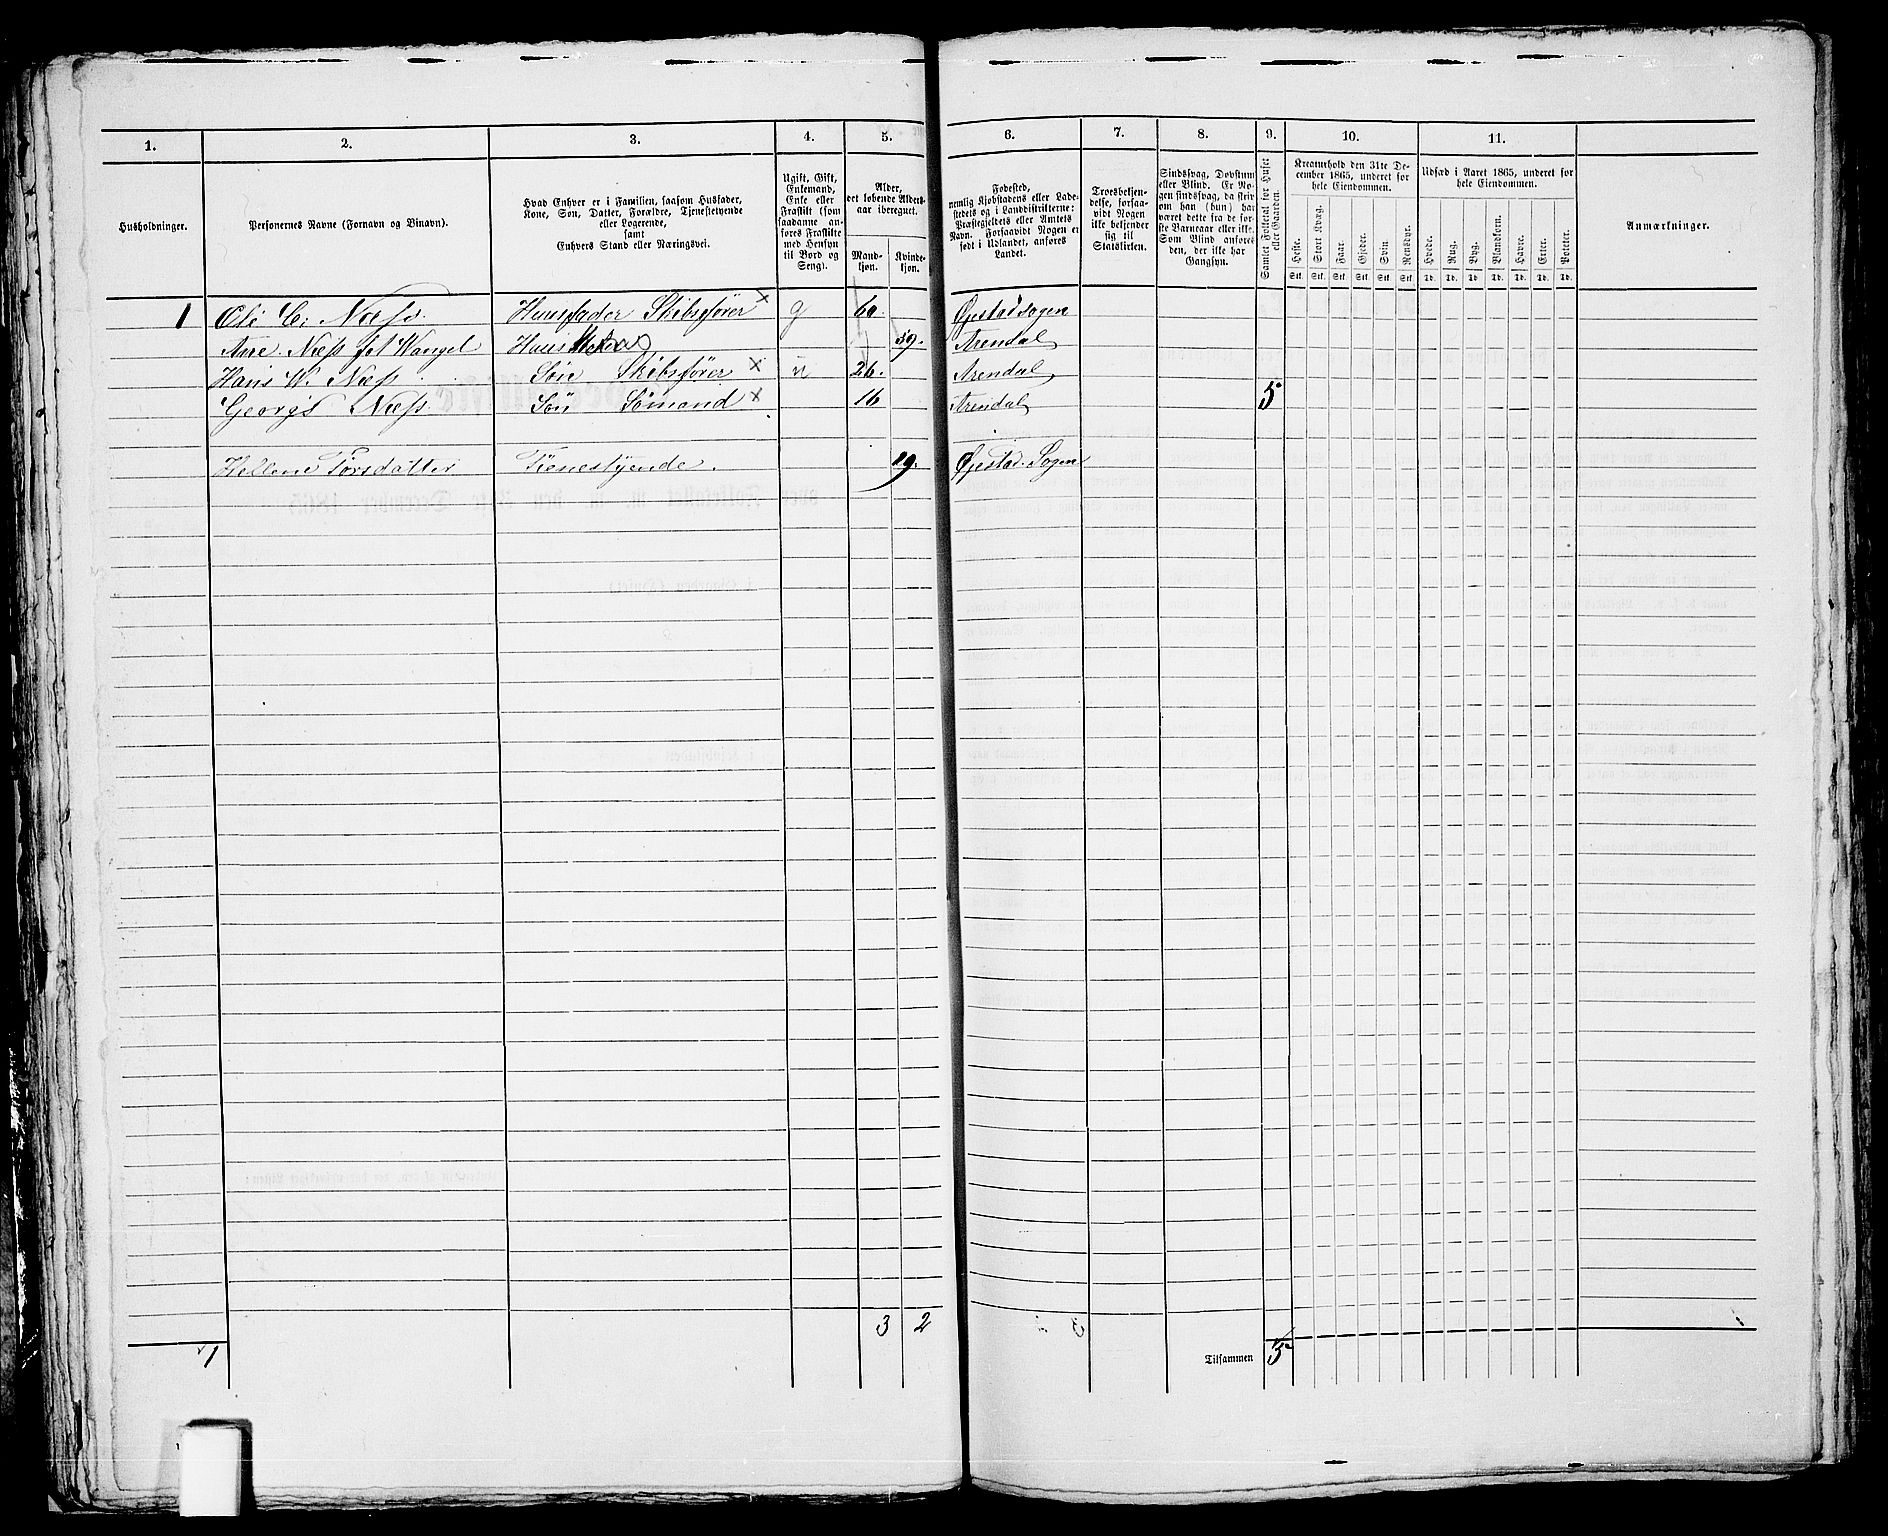 1. 2. 3. 4. 5. 6. 7. 8. 9. 10. 11.
Husholdninger.
Personernes Navne (Fornavn og Binavn).
Hvad Enhver er i Familien, saasom Husfader,
Kone, Søn, Datter, Forældre, Tjenestetyende
eller Logerende,
samt
Enhvers Stand eller Næringsvei.
Ugift, Gift,
Enkemand,
Enke eller
Fraskilt (som
saadanne an-
føres Fraskilte
med Hensyn
til Bord og
Seng).
Alder,
det løbende Alders-
aar iberegnet.
Mand-
kjøn.
Kvinde-
kjøn.
Fødested,
nemlig Kjøbstadens eller Lade-
stedets og i Landdistrikterne:
Præstegjeldets eller Amtets
Navn. Forsaavidt Nogen er
født i Udlandet, anføres
Landet.
Troesbekjen-
delse, forsaa-
vidt Nogen
ikke bekjender
sig til
Statskirken.
Sindssvag, Døvstum
eller Blind. Er No-
gen sindssvag, da skriv
om han (hun) har
været dette fra de før-
ste Barneaar eller ikke.
Som Blind anføres
den, der ikke har
Gangsyn.
Samlet Folketal for Huset
eller Gaarden.
Kreaturhold den 31te De-
cember 1865, underet for
hele Eiendommen.
Heste. Stort Kvæg. Faar. Gjeder. Svin. Rensdyr.
Stk. Stk. Stk. Stk. Stk. Stk.
Udsæd i Aaret 1865, underet for
hele Eiendommen.
Hvede. Rug. Byg. Blandkorn. Havre. Erter. Poteter.
Td. Td. Td. Td. Td. Td. Td.
Anmærkninger.
1 Ole C. Næss. Huusfader Skibsfører × g 60. Øjestad sogen
Ane. Næss føt Wangel 59. Arendal
Hans W. Næss Sön Skibsfører × u 26. Arendal
Georg Næss. Sön Sömand × 16 Arendal 5
Hellene Torsdatter Tienestyende. 19. Øjestad. Sogen
3 2
1 Tilsammen 5